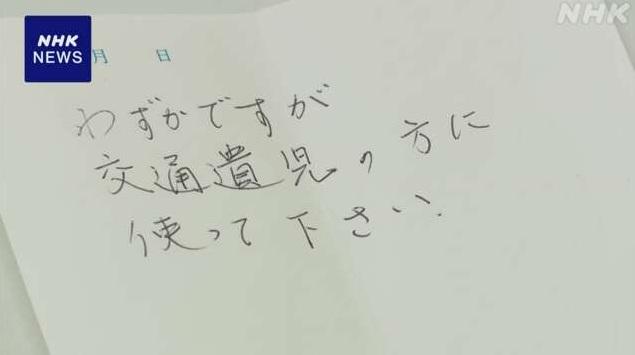 NHK
NEWS
NHK
月 日
わずかですが
交通遺児の方に
使って下さい.